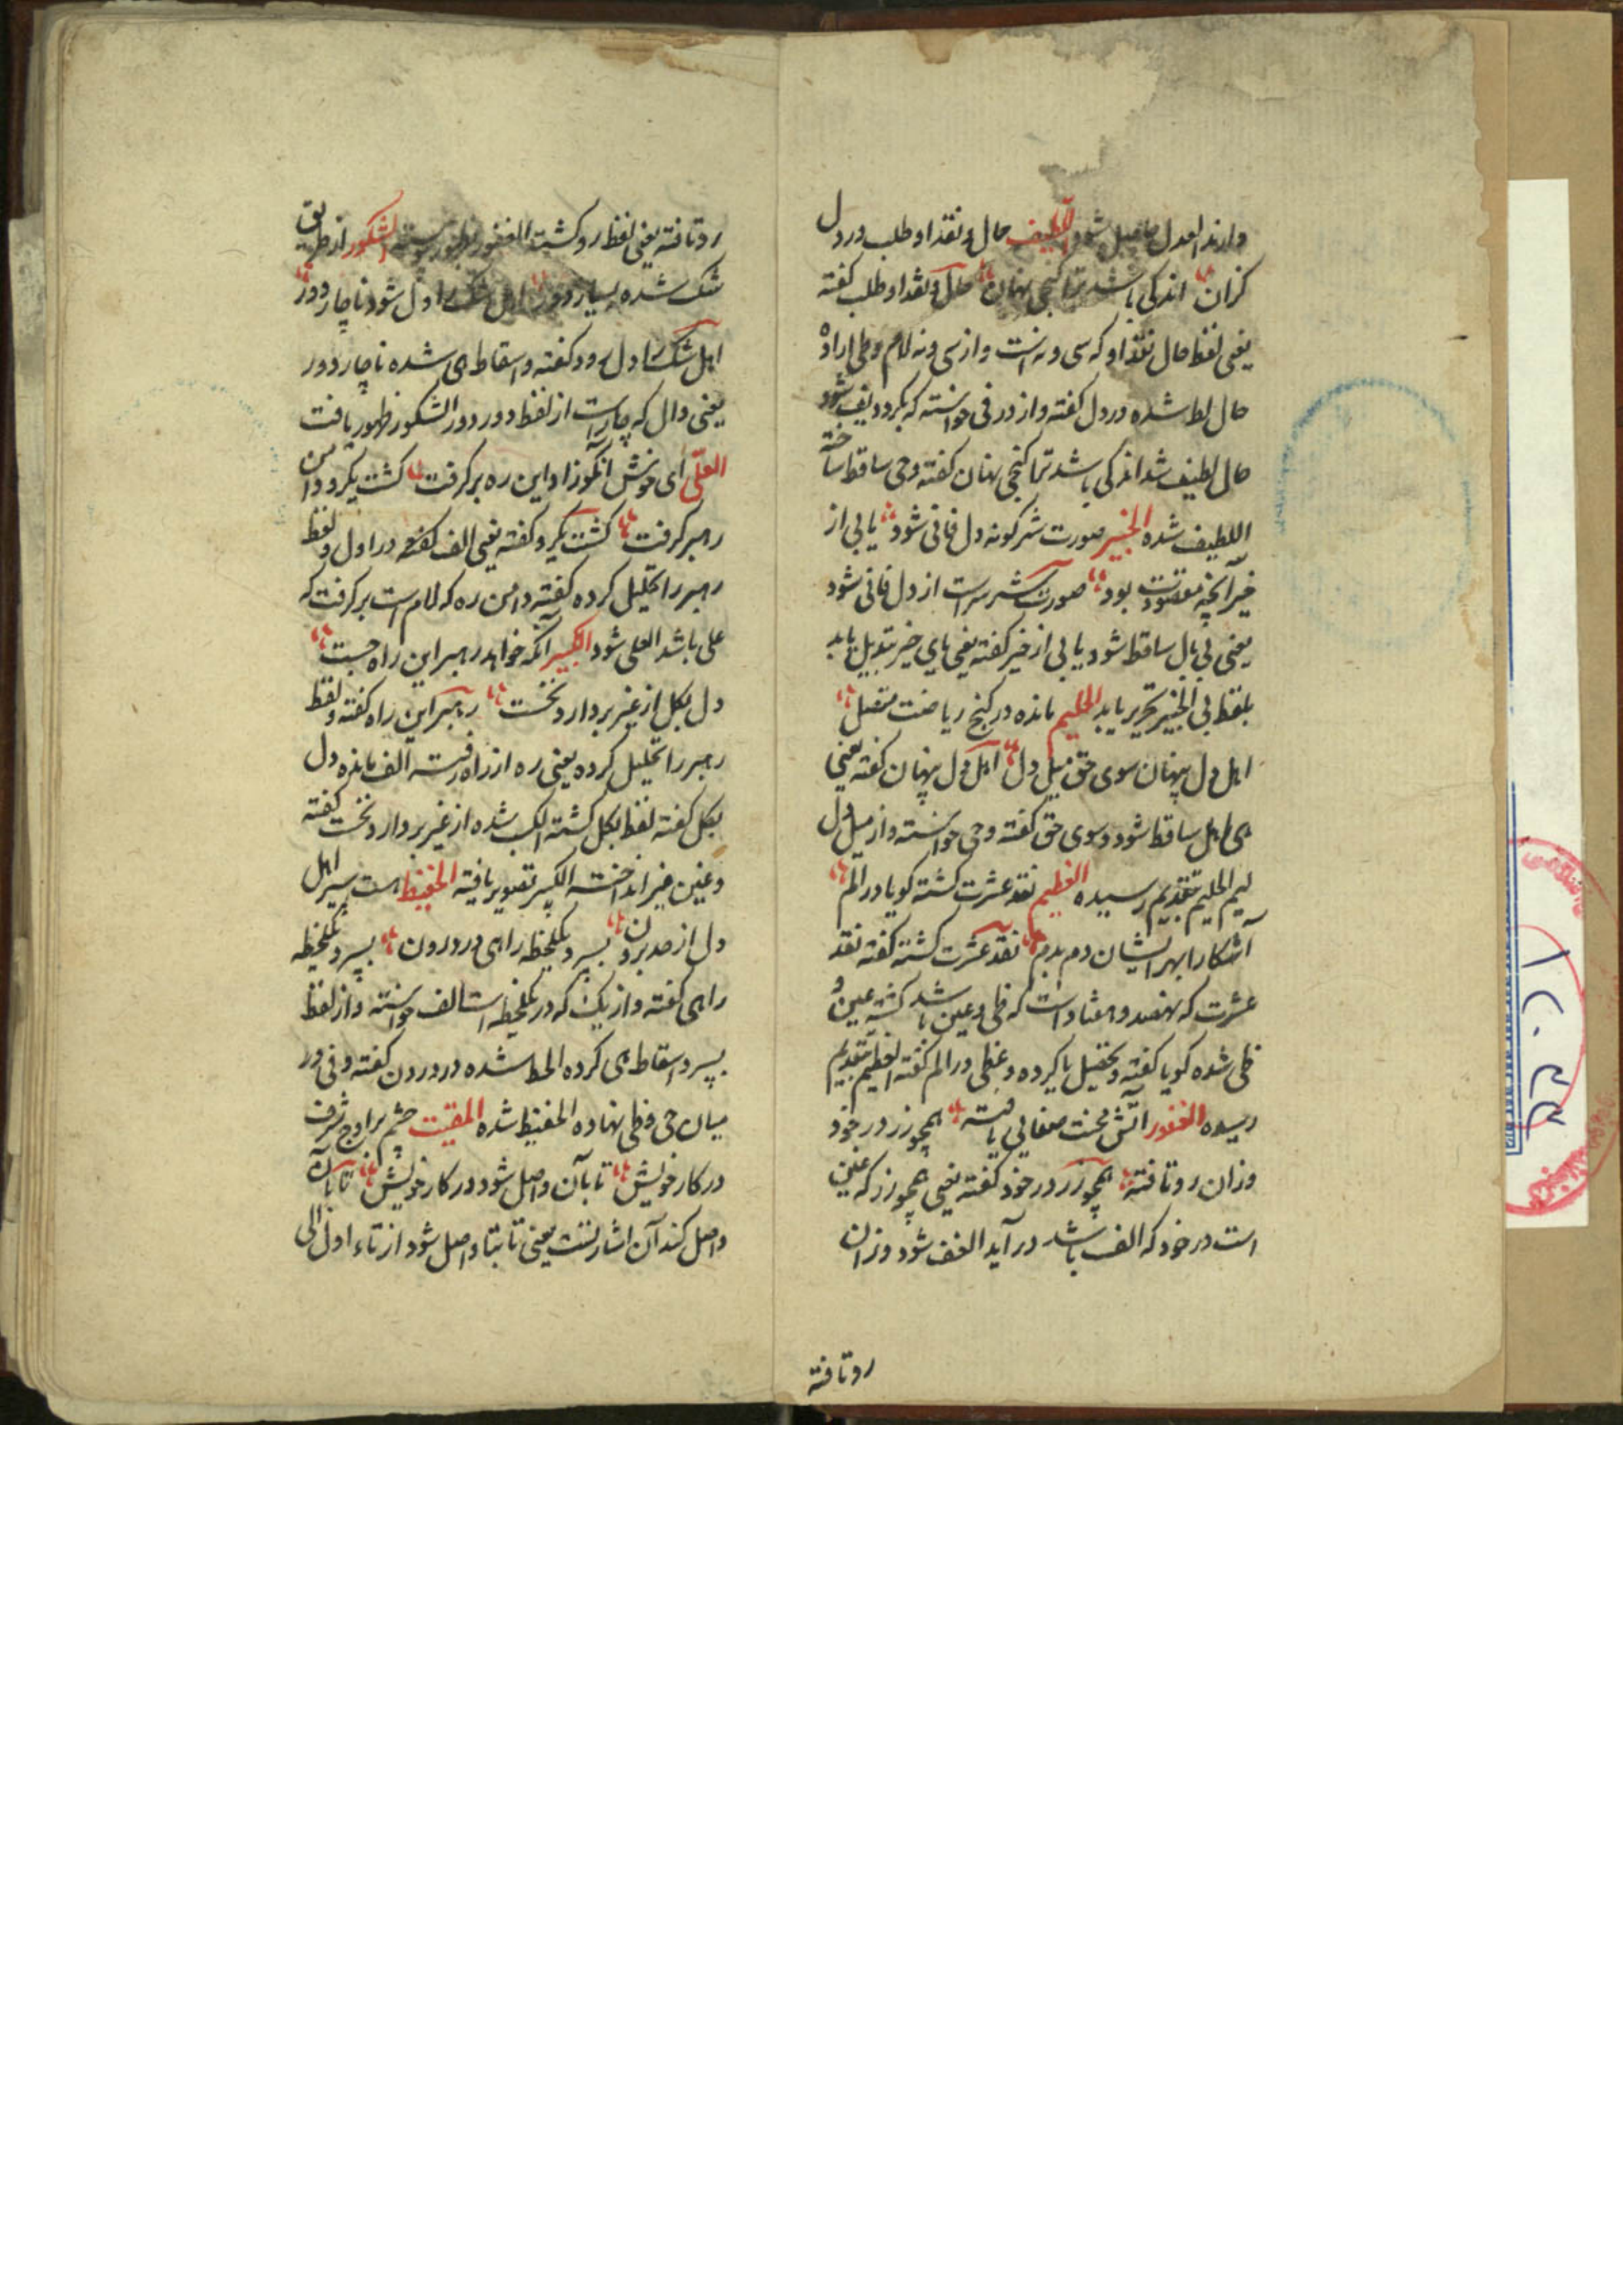 دارند العدل حاصل شود اللطیف حال و نقد او طلب در دل
کران اندکی باشد ترا کنجی نهان حال و نقد او طلب گفته
یعنی لفظ حال نقد او که سی و نه است و از سی و نه لام و طی اراده
حال لط شده در دل گفته و از در فی خواسته که بگرد دیف شود
حال لطیف شد اندکی باشد ترا کنجی نهان گفته و حی ساقط ساخته
اللطیف شده الخبیر صورت شر کونه دل فانی شود یابی از
خیر آنچه مقصودت بود صورت شر سراست از دل فانی شود
یعنی بی بال ساقط شود یابی از خیر گفته یعنی یای خیر تبدیل یابد
بلفظ بی الخبیر تحریر یابد الحلیم مانده در کنج ریاضت متصل
اهل دل پنهان سوی حق میل دل اهل دل پنهان گفته یعنی
های اهل ساقط شود و سوی حق گفته و حی خواسته و از میل دل
لیم الحلیم بتقدیم رسیده العظیم نقد عشرت گشته گویا در الم
آشکارا بهر ایشان دم بدم نقد عشرت گشته گفته نقد
عشرت که نهصد و هفتاد است که ظی و عین باشد گشته عین و
ظی شده گویا گفته و تحصیل یا کرده و عظی در الم گفته العظیم بتقدیم
رسیده الغفور آتش محنت صفایی یافته همچو زر در خود
وزان رو تافته همچو زر در خود گفته یعنی همچو زر که عین
است در خود که الف باشد در آید الغف شود وزان
رو تافته
رو تافته یعنی لفظ رو گشت الغفور بظهور پیوسته الشکور از طریق
شک شده بسیار دور اهل شک را دل شود ناچار دور
اهل شک را دل رود گفته و اسقاط های شده ناچار دور
یعنی دال که چار است از لفظ دور دور الشکور ظهور یافت
العلی ای خوش آنکو زاد این ره بر گرفت گشت یکرو دامن
رهبر گرفت گشت یکرو گفته یعنی الف گفته در اول و لفظ
رهبر را تحلیل کرده گفته دامن ره که لام است بر گرفت که
علی باشد العلی شود الکبیر آنکه خواهد رهبر این راه جست
دل بکل از غیر بردارد نخست رهبر این راه گفته و لفظ
رهبر را تحلیل کرده یعنی ره از راه رفته الف مانده دل
بکل گفته لفظ بکل گشته الکب شده از غیر بردارد نخست گفته
و غین غیر انداخته الکبیر تصویر یافته الحفیظ هست سیر اهل
دل از حد برون بسپرد یکلحظه راهی در درون بسپرد یکلحظه
راهی گفته و از یک که در یکلحظه است الف خواسته و از لفظ
بسپرد اسقاط های کرده الحظ شده در درون گفته و فی در
میان حی و ظی نهاده الحفیظ شده المقیت چشم بر اوج شرف
در کار خویش تا بآن واصل شود در کار خویش تا بآن
واصل کند آن اشارتست یعنی تا بتا واصل شود از تاء اول الی